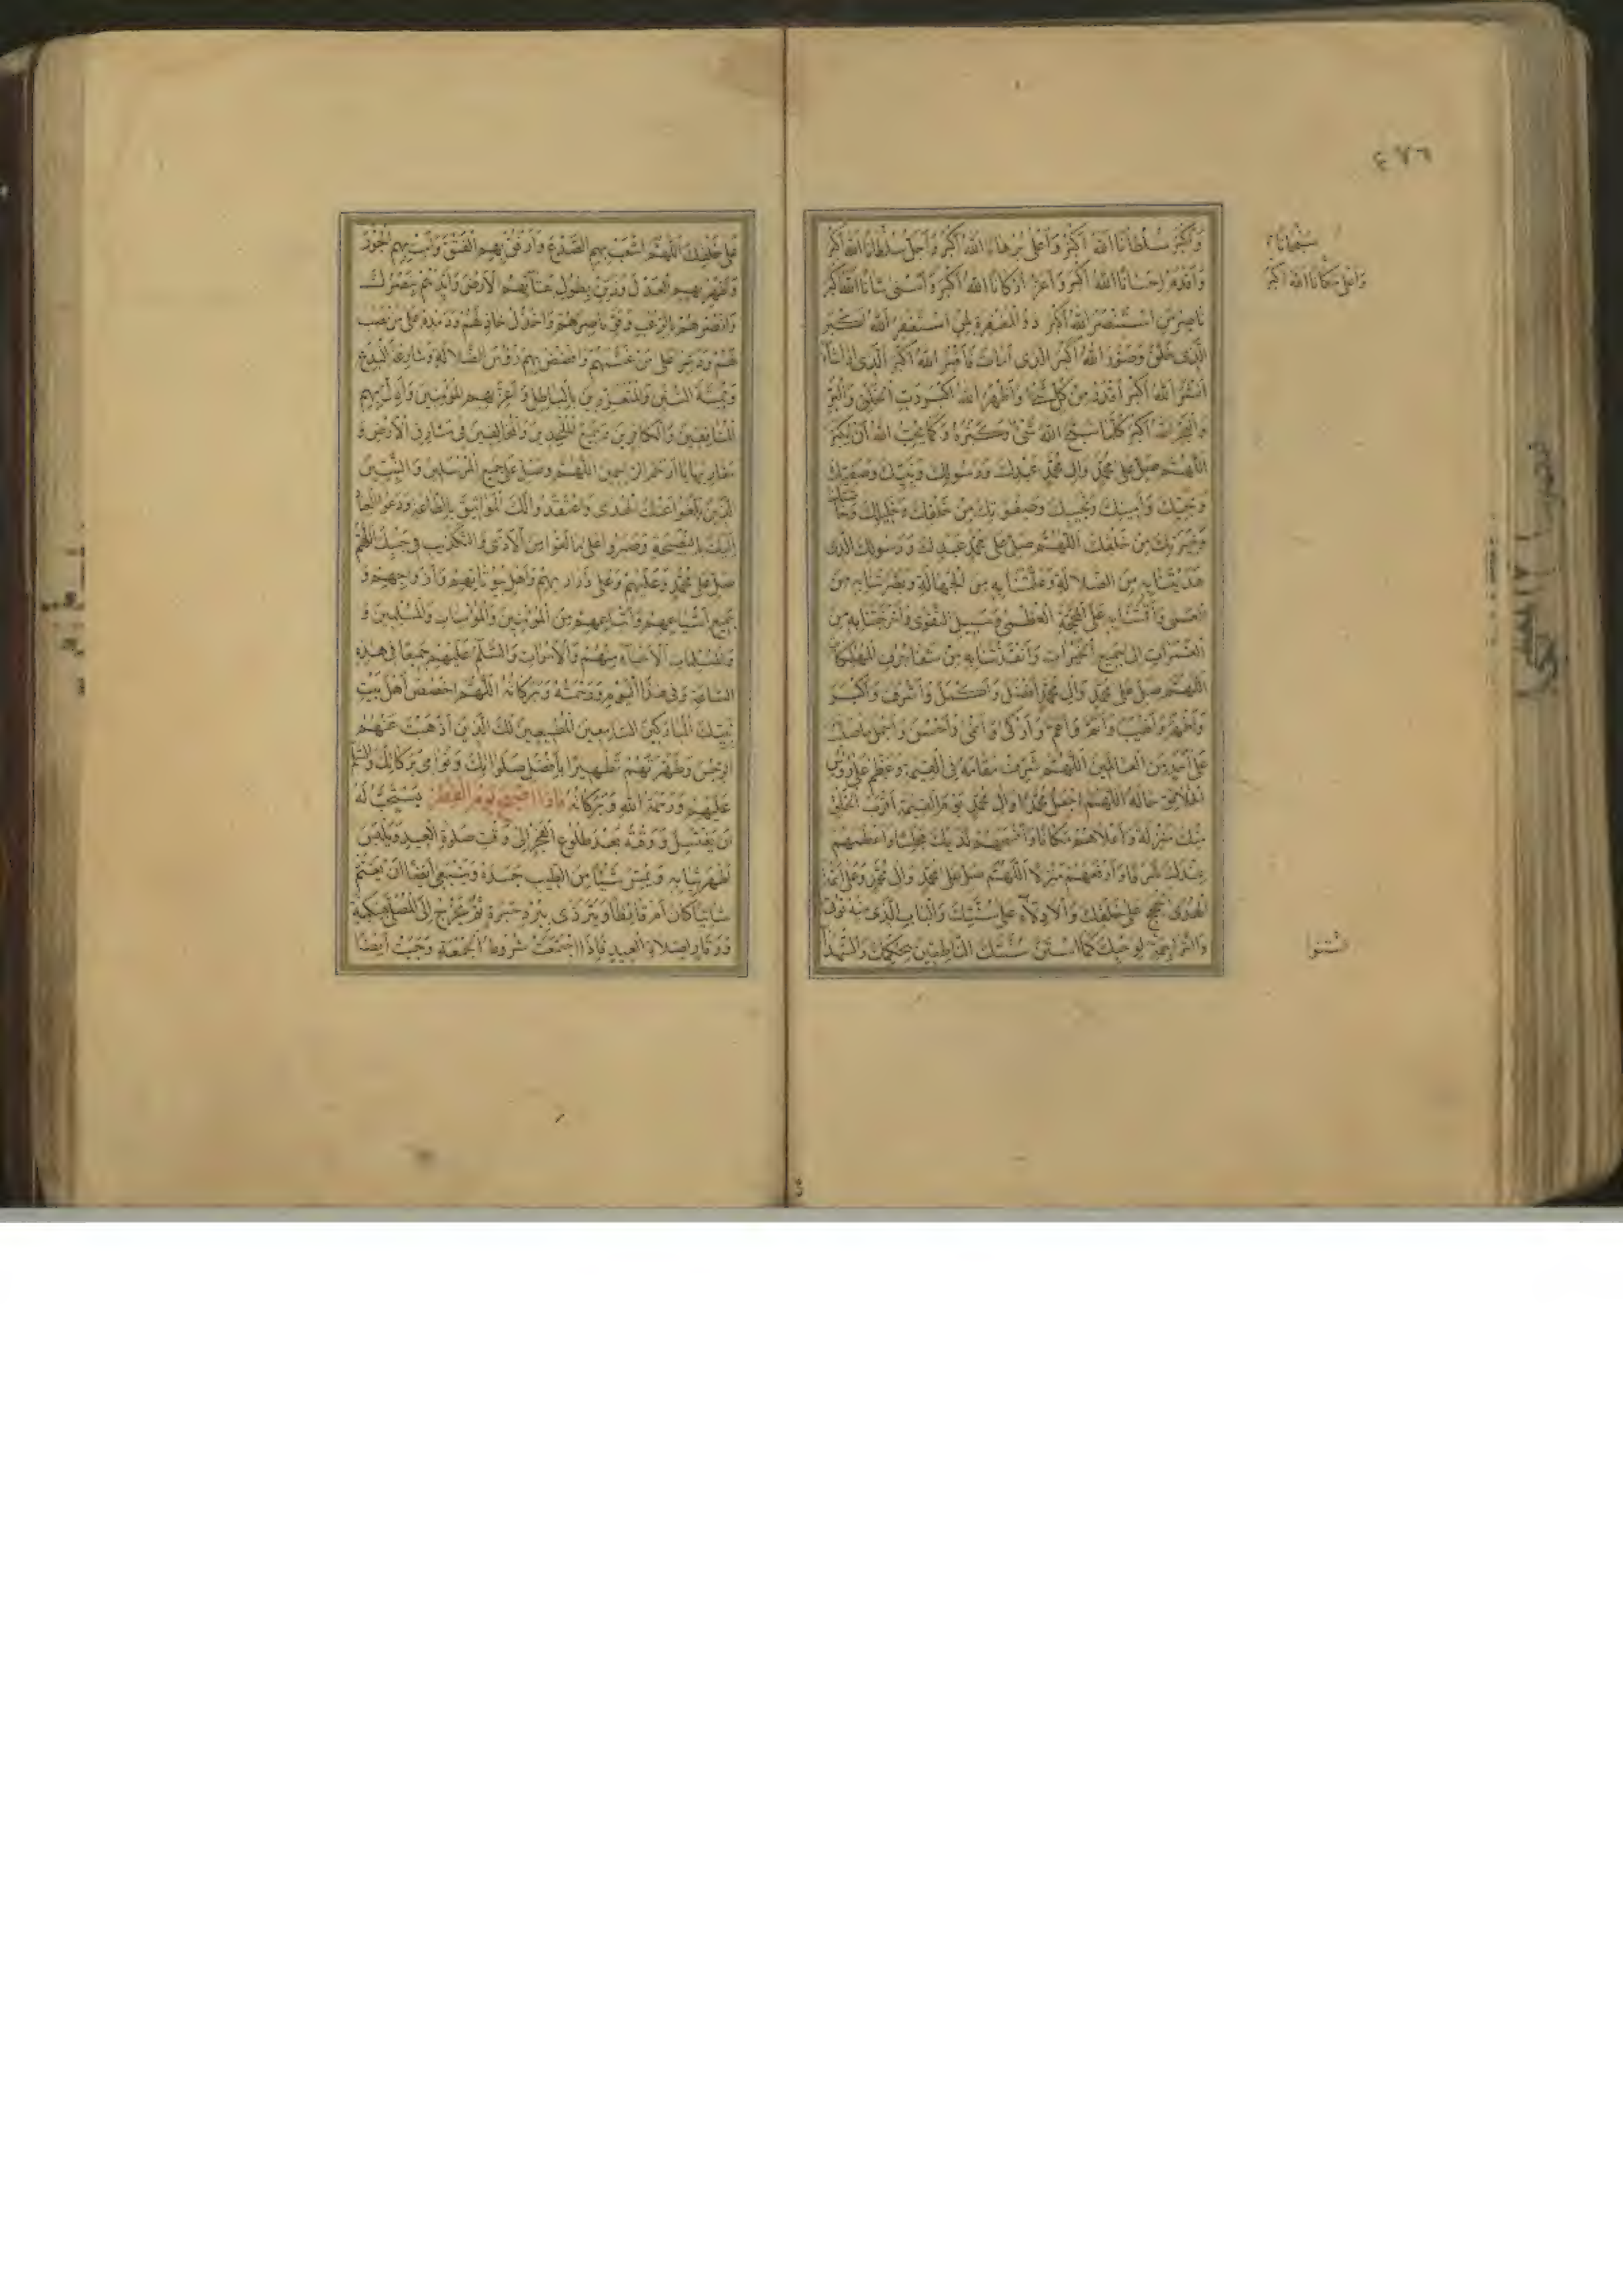 ٤٧٦
سبحانا
واعلى مكانا الله اكبر
وَاكبَرُ سُلْطانًا اَللهُ اَكبَرُ وَاَعلى بُرهانًا اللهُ اَكبَرُ وَاَجَلُّ سُلْطانًا اللهُ اكبَر
وَاَقدَمُ اِحسانًا اللهُ اَكبَرُ وَاَعَزُّ اَركانًا اللهُ اَكبَرُ وَاَسْنى شانًا اللهُ اكبَر
ناصِرُ مَنِ اسْتَنْصَرَ اللهُ اَكبَر ذو المَغفِرَةِ لِمَنِ اسْتَغفَرَ اللهُ اَكبَر
الَّذى خَلَقَ وَصَوَّرَ اللهُ اَكبَرُ الَّذى اَماتَ فَاَقبَرَ اللهُ اَكبَرُ الَّذى اِذا شآءَ
اَنشَرَ اللهُ اَكبَرُ اَقدَسُ مِن كُلِّ شَىءٍ وَاَظهَرُ اللهُ اَكبَرُ رَبُّ الخَلقِ وَالبَرِّ
وَالبَحرِ اللهُ اَكبَرُ كُلَّما سَبَّحَ اللهَ شَىءٌ وَكَبَّرَهُ وَكَما يُحِبُّ اللهُ اَن يُكَبَّرَ
اللّهُمَّ صَلِّ عَلى مُحَمَّدٍ وَالِ مُحَمَّدٍ عَبدِكَ وَرَسولِكَ وَنَبِيِّكَ وَصَفِيِّكَ
وَحَبيبِكَ وَاَمينِكَ وَنَجيبِكَ وَصَفوَتِكَ مِن خَلقِكَ وَخَليلِكَ وَخاصَّتِكَ
وَخِيَرَتِكَ مِن خَلقِكَ اَللّهُمَّ صَلِّ عَلى مُحَمَّدٍ عَبدِكَ وَرَسولِكَ الَّذى
هَدَيتَنا بِهِ مِنَ الضَّلالَةِ وَعَلَّمتَنا بِهِ مِنَ الجَهالَةِ وَبَصَّرتَنا بِهِ مِنَ
العَمى وَاَقَمتَنا بِهِ عَلَى المَحَجَّةِ العُظمى وَسَبيلِ التَّقوى وَاَخرَجتَنا بِهِ مِنَ
الغَمَراتِ اِلى جَميعِ الخَيراتِ وَاَنقَذتَنا بِهِ مِن شَفا جُرُفِ الهَلَكاتِ
اللّهُمَّ صَلِّ عَلى مُحَمَّدٍ وَالِ مُحَمَّدٍ اَفضَلَ وَاَكمَلَ وَاَشرَفَ وَاَكبَرَ
وَاَطهَرَ وَاَطيَبَ وَاَتَمَّ وَاَعَمَّ وَاَزكى وَاَنمى وَاَحسَنَ وَاَجمَلَ ما صَلَّيتَ
عَلى اَحَدٍ مِنَ العالَمينَ اَللّهُمَّ شَرِّف مَقامَهُ فِى القِيمَةِ وَعَظِّم عَلى رُؤُسِ
الخَلائِقِ حالَهُ اللّهُمَّ اجعَل مُحَمَّدًا وَالَ مُحَمَّدٍ يَومَ القِيمَةِ اَقرَبَ الخَلقِ
مِنكَ مَنزِلَةً وَاَعلاهُم مَكانًا وَاَفسَحَهُم لَدَيكَ مَجلِسًا وَاَعظَمَهُم
عِندَكَ شَرَفًا وَاَرفَعَهُم مَنزِلًا اَللّهُمَّ صَلِّ عَلى مُحَمَّدٍ وَالِ مُحَمَّدٍ وَعَلى اَئِمَّةِ
الهُدى الحُجَجِ عَلى خَلقِكَ وَالاَدِلّآءِ عَلى سُنَّتِكَ وَالبابِ الَّذى مِنهُ تُؤتى
وَالتَّراجِمَةِ لِوَحيِكَ كَمَا استَنّ سُنَّتَكَ النّاطِقينَ بِحِكمَتِكَ وَالشُّهَدا
استنوا
عَلى خَلقِكَ اَللّهُمَّ اشعَب بِهِمُ الصَّدعَ وَارتُق بِهِمُ الفَتقَ وَاَمِت بِهِمُ الجَورَ
وَاَظهِر بِهِمُ العَدلَ وَزَيِّن بِطولِ بَقآئِهِمُ الاَرضَ وَاَيِّدهُم بِنَصرِكَ
وَانصُرهُم بِالرُّعبِ وَقَوِّ ناصِرَهُم وَاخذُل خاذِلَهُم وَدَمدِم عَلى مَن نَصَبَ
لَهُم وَدَمِّر عَلى مَن غَشَمَهُم وَافضُض بِهِم رُؤُسَ الضَّلالَةِ وَشارِعَةَ البِدَعِ
وَمُميتَةَ السُّنَنِ وَالمُتَعَزِّزينَ بِالباطِلِ وَاَعِزَّ بِهِمُ المُؤمِنينَ وَاَذِلَّ بِهِمُ
المُنافِقينَ وَالكافِرينَ وَجَميعَ المُلحِدينَ وَالمُخالِفينَ فى مَشارِقِ الاَرضِ وَ
مَغارِبِها يا اَرحَمَ الرّاحِمينَ اللّهُمَّ وَصَلِّ عَلى جَميعِ المُرسَلينَ وَالنَّبِيّينَ
الَّذينَ بَلَّغوا عَنكَ الهُدى وَاعتَقَدوا لَكَ المَواثيقَ بِالطّاعَةِ وَدَعَوُا العِبادَ
اِلَيكَ بِالنَّصيحَةِ وَصَبَروا عَلى ما لَقوا مِنَ الاَذى وَالتَّكذيبِ فى جَنبِكَ اللّهُمَّ
صَلِّ عَلى مُحَمَّدٍ وَعَلَيهِم وَعَلى ذَراريهِم وَاَهلِ بُيوتاتِهِم وَاَزواجِهِم وَ
جَميعِ اَشياعِهِم وَاَتباعِهِم مِنَ المُؤمِنينَ وَالمُؤمِناتِ وَالمُسلِمينَ وَ
وَالمُسلِماتِ الاَحيآءِ مِنهُم وَالاَمواتِ وَالسَّلامُ عَلَيهِم جَميعًا فى هذِهِ
السّاعَةِ وَفى هذَا اليَومِ وَرَحمَتُهُ وَبَرَكاتُهُ اللّهُمَّ اخصُص اَهلَ بَيتِ
نَبِيِّكَ المُبارَكينَ السّامِعينَ المُطيعينَ لَكَ الَّذينَ اَذهَبتَ عَنهُمُ
الرِّجسَ وَطَهَّرتَهُم تَطهيرًا بِاَفضَلِ صَلَواتِكَ وَنَوامى بَرَكاتِكَ وَالسَّلام
عَلَيهِم وَرَحمَةُ اللهِ وَبَرَكاتُهُ فاذا اصبح يوم الفطر يُستَحَبُّ لَهُ
اَن يَغتَسِلَ وَوَقتُهُ بَعدَ طُلوعِ الفَجرِ اِلى وَقتِ صَلوةِ العيدِ وَيَلبَسَ
اَطهَرَ ثِيابِهِ وَيَمَسَّ شَيئًا مِنَ الطّيبِ جَسَدَهُ وَيَنبَغى اَيضًا اَن يَعتَمَّ
شاتِيًا كانَ اَم قائِظًا وَيَتَرَدّى بِبُردِ حِبَرَةٍ ثُمَّ يَخرُجُ اِلَى المُصَلّى بِسَكينَةٍ
وَوَقارٍ لِصَلاةِ العيدِ فَاِذَا اجتَمَعَت شُروطُ الجُمعَةِ وَجَبَت اَيضًا